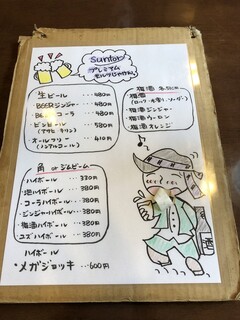 suntory
プレミアム
モルツじゃけん
生ビール ・・・480円
BEERジンジャー・・480円
BEERコーラ ・・480円
ビンビール ・・・580円
(アサヒ キリン)
オールフリー ・・・410円
(ノンアルコール)
梅酒 各
梅酒
(ロック・水割り・ソーダ)
梅酒ジンジャー
梅酒ウーロン
梅酒オレンジ
角 or ジムビーム
ハイボール ・・・330円
ハイボール・・・380円
コーラハイボール・・・380円
ジンジャーハイボール・・380円
梅酒ハイボール・・・380円
ユズハイボール・・・380円
ハイボール
・メガジョッキ ・・・600円